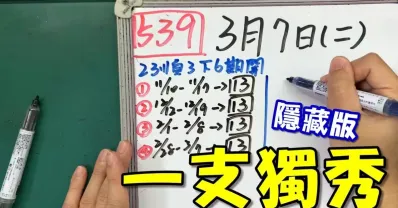 539 3月7日(二)
23順3下6期開
① 11/10-11/17→13
② 12/12-12/19→13
③ 2/1-2/8→13
④ 2/28-3/7→13
隱藏版
一支獨秀